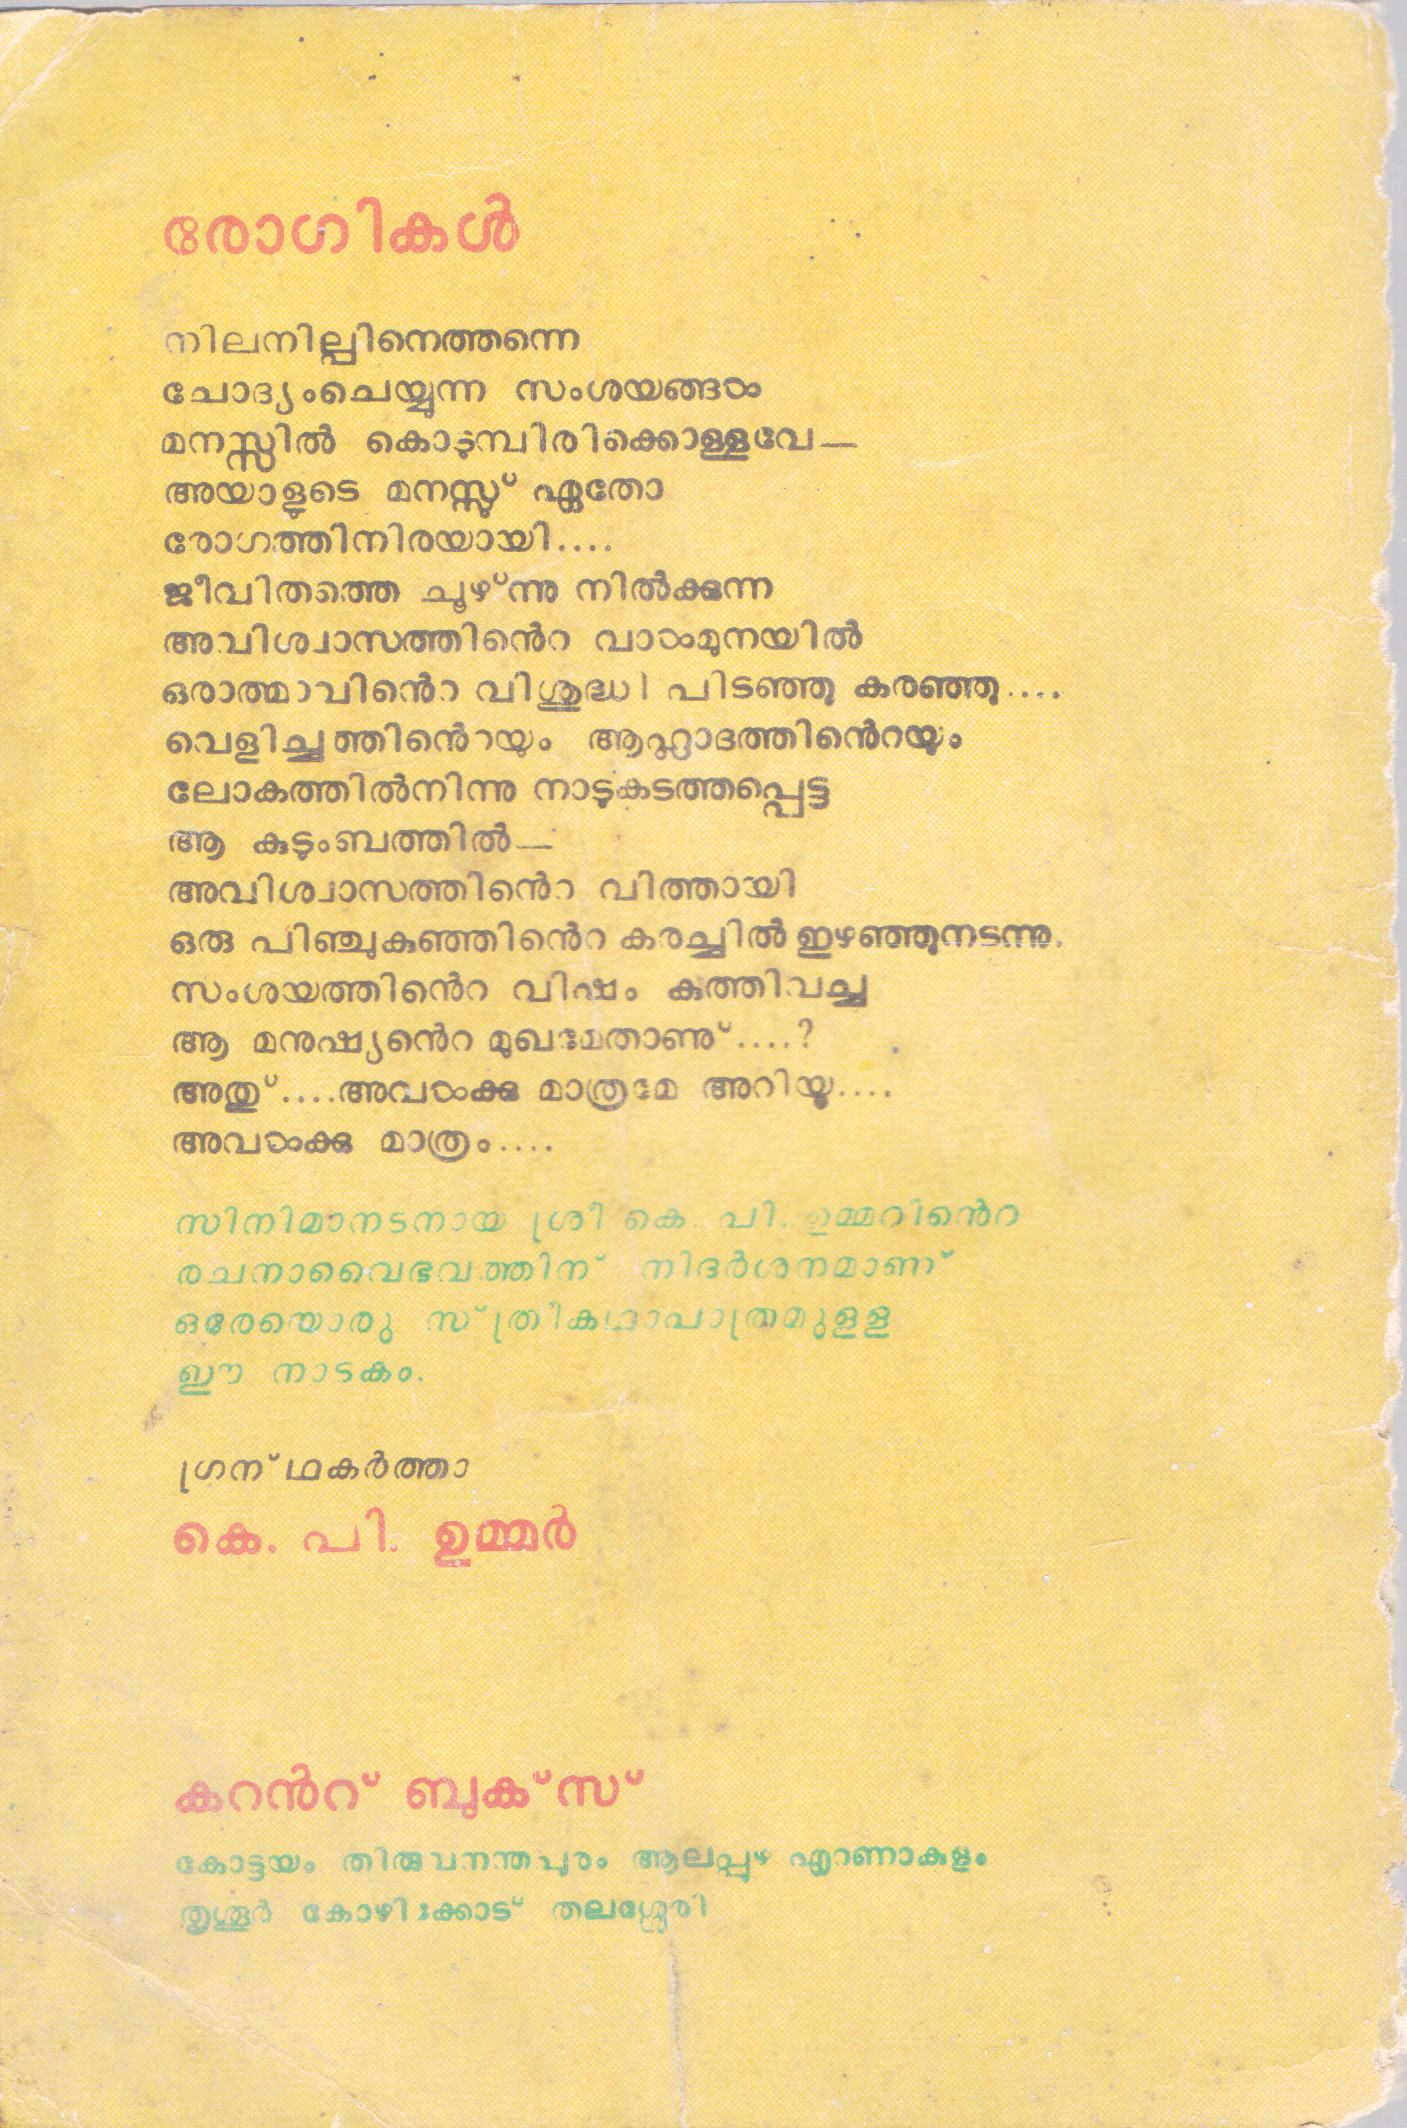 രോഗികൾ
നിലനില്പിനെത്തന്നെ
ചോദ്യംചെയ്യുന്ന സംശയങ്ങൾ
മനസ്സിൽ കൊടുമ്പിരിക്കൊള്ളവേ—
അയാളുടെ മനസ്സു് ഏതോ
രോഗത്തിനിരയായി....
ജീവിതത്തെ ചൂഴ്ന്നു നിൽക്കുന്ന
അവിശ്വാസത്തിൻെറ വാൾമുനയിൽ
ഒരാത്മാവിൻെറ വിശുദ്ധി പിടഞ്ഞു കരഞ്ഞു....
വെളിച്ചത്തിൻെറയും ആഹ്ലാദത്തിൻെറയും
ലോകത്തിൽനിന്നു നാടുകടത്തപ്പെട്ട
ആ കുടുംബത്തിൽ—
അവിശ്വാസത്തിൻെറ വിത്തായി
ഒരു പിഞ്ചുകുഞ്ഞിൻെറ കരച്ചിൽ ഇഴഞ്ഞുനടന്നു.
സംശയത്തിൻെറ വിഷം കുത്തിവച്ച
ആ മനുഷ്യൻെറ മുഖമേതാണു്....?
അതു്....അവൾക്കു മാത്രമേ അറിയൂ....
അവൾക്കു മാത്രം....
സിനിമാനടനായ ശ്രീ കെ. പി. ഉമ്മറിൻെറ
രചനാവൈഭവത്തിന് നിദർശനമാണ്
ഒരേയൊരു സ്ത്രീകഥാപാത്രമുളള
ഈ നാടകം.
ഗ്രന്ഥകർത്താ
കെ. പി. ഉമ്മർ
കറൻറ് ബുക്സ്
കോട്ടയം തിരുവനന്തപുരം ആലപ്പുഴ എറണാകുളം
തൃശൂർ കോഴിക്കോട് തലശ്ശേരി